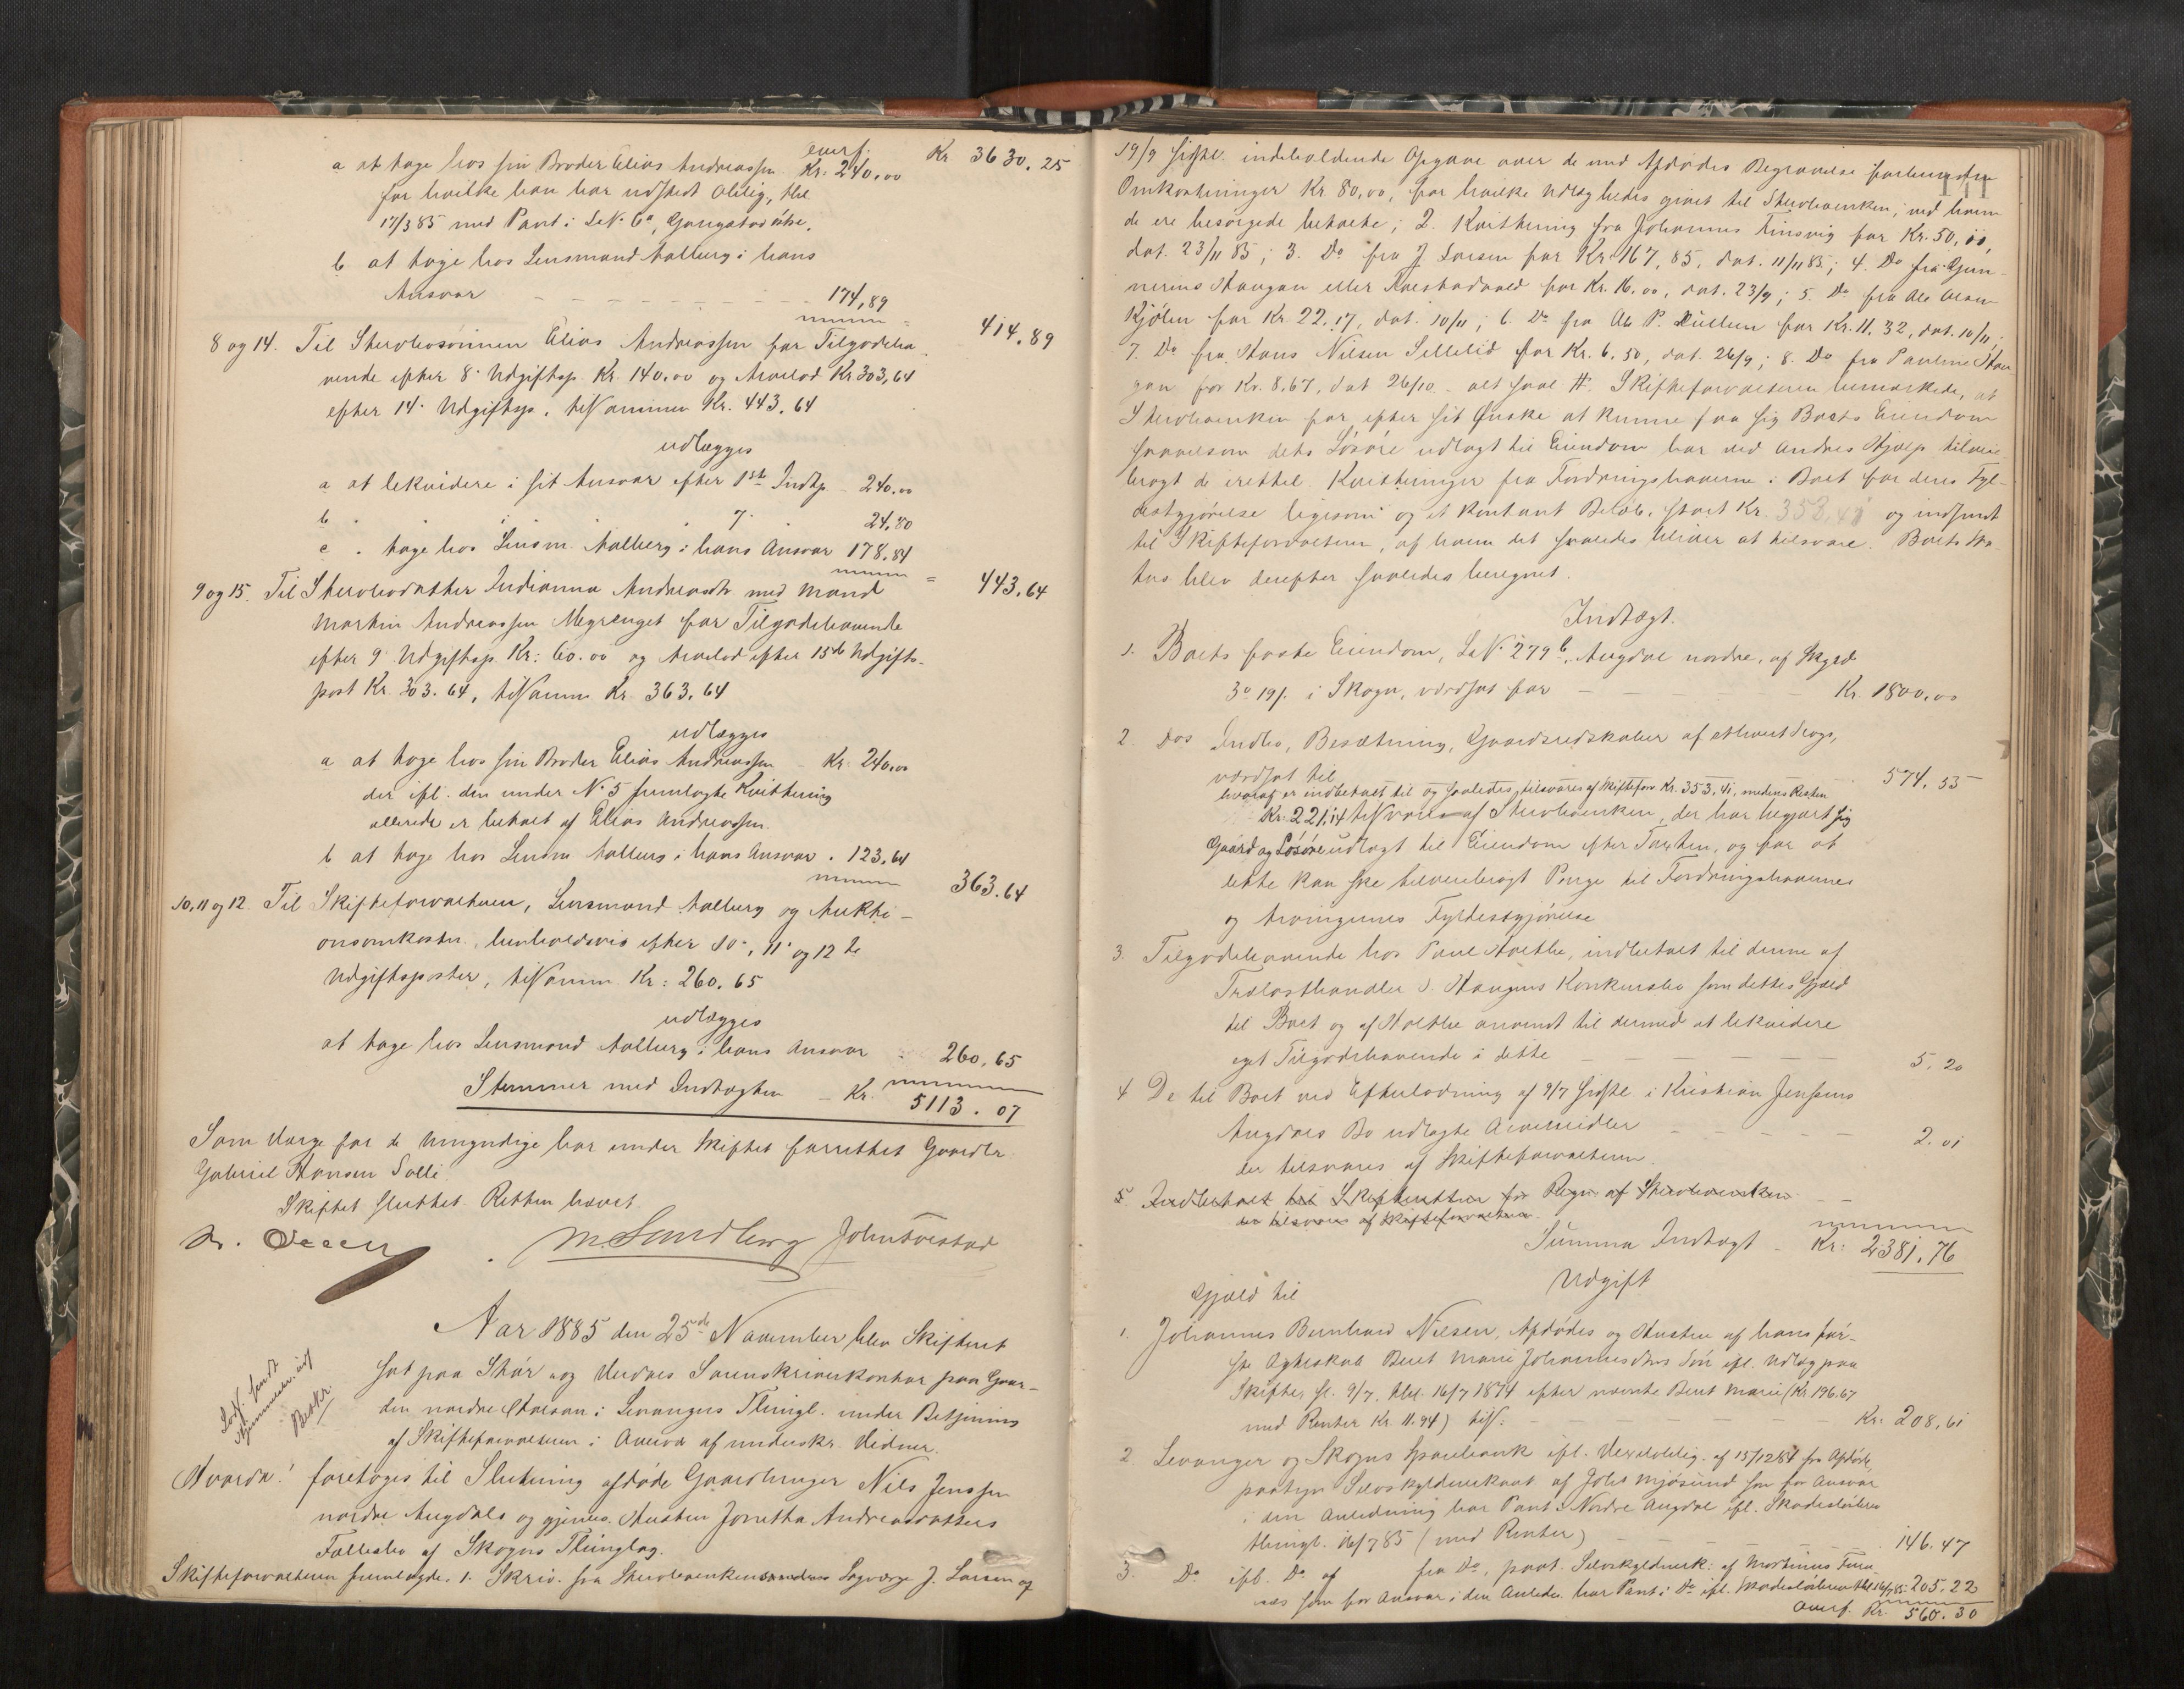 overf. Kr 3630.25
a at tage hos sin Broder Elias Andreassen Kr. 240.00
for hvilke han har udstedt Oblig., thl.
17/3 85 med Pant i LNo 6a, Gangstad østre.
b at tage hos Lensmand Aalberg i hans
Ansvar 174,89
414.89
8 og 14. Til Stervbosønnen Elias Andreassen for Tilgodeha-
vende efter 8. Udgiftsp. Kr. 140.00 og Arvelod Kr 303,64
efter 14. Udgiftsp., tilsammen Kr. 443.64
udlægges
a at lekvidere i sit Ansvar efter 1ste Indtp. 240.00
b " " " " 7. " 24,80
c " tage hos Lensm. Aalberg i hans Ansvar 178,84
443.64
9 og 15. Til Stervbodatter Indianna Andreasdtr med Mand
Martin Andreassen for Tilgodehavende
efter 9. Udgiftsp. Kr: 60.00 og Arvelod efter 15de Udgifts-
post Kr. 303.64, tilsamm. Kr. 363.64
udlægges
a at tage hos sin Broder Elias Andreassen Kr. 240.00
der ifl. den under No 5 fremlagte Kvittering
allerede er betalt af Elias Andreassen.
b at tage hos Lensm Aalberg i hans Ansvar . 123.64
363.64
10, 11 og 12. Til Skifteforvalteren, Lensmand Aalberg og Aukti-
onsomkostn., henholdsvis efter 10., 11. og 12te
Udgiftsposter, tilsamm. Kr: 260.65
udlægges
at tage hos Lensmand Aalberg i hans Ansvar 260,65
Stemmer med Indtægten – Kr. 5113.07
Som Værge for de Umyndige har under Skiftet forrettet Gaardbr.
Gabriel Hansen Salli.
Skiftet sluttet. Retten hævet.
M. Sundberg
Aar 1885 den 25de November blev Skifteret
sat paa Stør og Værdals Sorenskriverkontor paa Gaar-
den nordre i Levangers Thingl. under Betjening
af Skifteforvalteren i Overvær af underskr. Vidner.
Hvorda! foretoges til Slutning afdøde Gaardbruger Nils Jenssen
nordre Augdals og gjenlev. Hustru Jonetta Andreasdatters
Fællesbo af Skogns Thinglag.
Skifteforvalteren fremlagde. 1. Skriv. fra Stervboenkens Lagværge J. Larsen af
19/9 sidstl. indeholdende Opgave over de med Afdødes Begravelse forbundne
Omkostninger Kr 80,00, for hvilke Udlæg bedes givet til Stervboenken, ved hvem
de ere besørgede betalte; 2. Kvittering fra Johannes Finsvig for Kr. 50,00,
dat. 23/11 85; 3. Do fra J Larsen for Kr. 167,85, dat. 11/11 85; 4. Do fra Gun-
nerius Haugan eller for Kr. 16.00, dat. 23/9; 5. Do fra Ole Olsen
Kjølen for Kr. 22.17, dat. 10/11; 6. Do fra Ole P. for Kr. 11.32, dat. 10/11;
7. Do fra Hans Nilsen Sellelid for Kr. 6.50, dat. 26/9; 8. Do fra Pauline Hau
gan for Kr. 8.67, dat 26/10 – alt saal. #. Skifteforvalteren bemærkede, at
Stervboenken for efter sit Ønske at kunne faa sig Boets Eiendom
saavelsom dets Løsøre udlagt til Eiendom har ved andres Hjælp tilveie-
bragt de Kvitteringer fra Fordringshaverne i Boet for deres Fyl-
destgjørelse ligesom og et kontant Beløb, stort Kr. 353.41 og indsendt
til Skifteforvalteren, af hvem det saaledes bliver at tilsvare. Boets Sta
tus blev derefter saaledes beregnet.
Indtægt.
1. Boets faste Eiendom, LNo 279b, Augdal nordre, af Skyld
3o 19/. i Skogn, værdsat for Kr. 1800,00
2. Dos Indbo, Besætning, Gaardsredskaber af ethvert Slags,
værdsat til 574.55
hvoraf er indbetalt til og saaledes tilsvares af Skiftefor. Kr. 353.41, medens Resten
Kr. 221.14 tilsvares af Stervboenken, der har begjært sig
Gaard og Løsøre udlagt til Eiendom efter Taxten, og for at
dette kan ske tilveiebragt Penge til Fordringshavernes
og Arvingernes Fyldestgjørelse
3. Tilgodehavende hos Paul Holthe, indbetalt til denne af
Trælasthandler J. Haugens Konkursbo som dettes Gjæld
til Boet og af Holthe anvendt til dermed at lekvidere
eget Tilgodehavende i dette 5.20
4 De til Boet ved Efterlodning af 9/7 sidstl. i Kristian Jensens
Augdals Bo udlagte Arvemidler 2.01
der tilsvares af Skifteforvalteren.
5. Indbetalt til Skifteretten for Regn. af Stervboenken
der tilsvares af Skifteforvalteren.
Summa Indtægt – Kr. 2381.76
Udgift
Gjæld til
1. Johannes Bernhard Nilsen, Afdødes og Hustru af hans før-
ste Ægteskab Beret Marie Johannesdtrs Søn ifl. Udlæg paa
Skifte, sl. 9/7, thl. 16/7 1874 efter nævnte Beret Marie (Kr. 196.67
med Renter Kr. 11.94) tils: Kr: 208,61
2 Levanger og Skogns Sparebank ifl. Vexeloblig. af 15/12 84 fra Afdøde,
paategn. Selvskyldnerkaut. af Johs Mjøsund som for Ansvar
i den Anledning har Pant i Nordre Augdal ifl. Skadesløsbrev
thingl. 16/7 85 (med Renter) 146.47
3. Do ifl. Do af fra Do, paat. Selvskyldnerk. af Martinus
næs som for Ansvar i den Anledn. har Pant i Do ifl. Skadesløsbrev thl. 16/7 85. 205.22
overf. Kr. 560.30